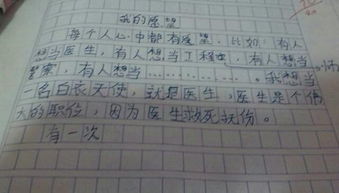 我的愿望
每个人心中都有愿望,比如:有人
想当医生,有人想当工程师,有人想当
警察,有人想当……………。我想当
一名白衣天使,就是医生,医生是个伟
大的职位,因为医生救死扶伤。
有一次